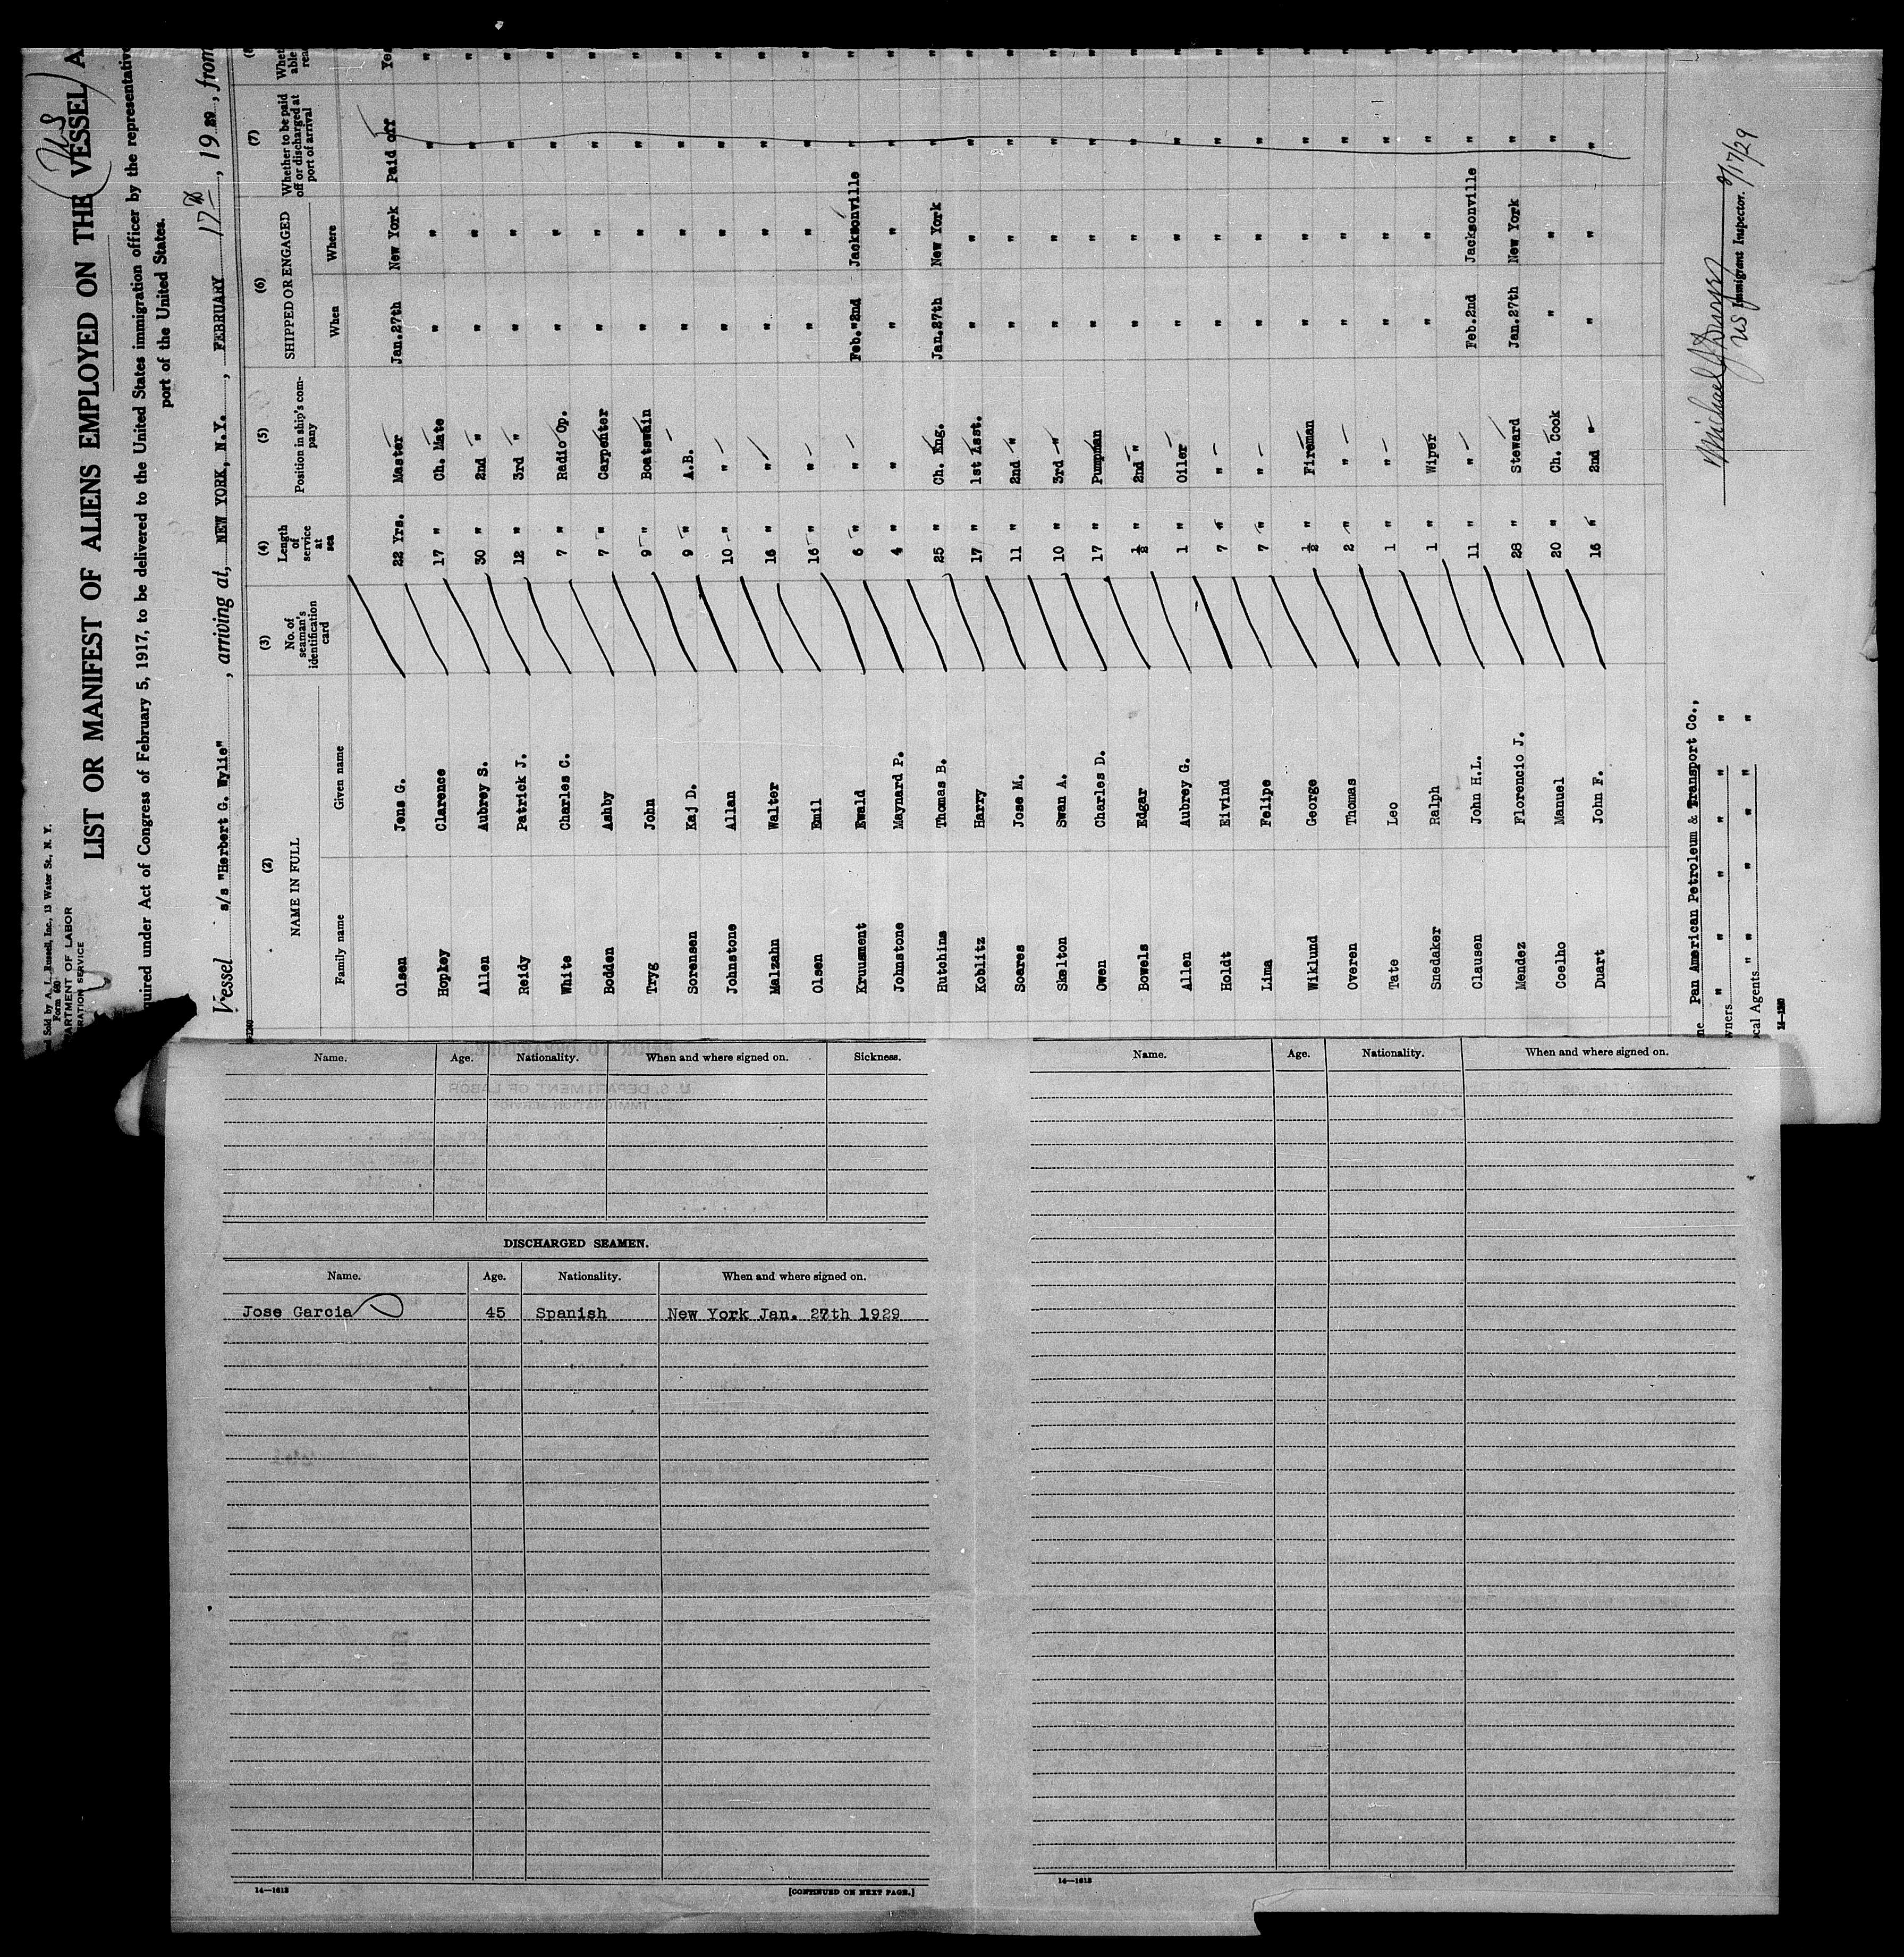 nd Sold by A. L. Russell, Inc., 13 Water St., N. Y.
Form 680
ARTMENT OF LABOR
RATION SERVICE
(US)
LIST OR MANIFEST OF ALIENS EMPLOYED ON THE VESSEL A
quired under Act of Congress of February 5, 1917, to be delivered to the United States immigration officer by the representativ
port of the United States.
Vessel s/s "Herbert G. Wylie", arriving at, NEW YORK, N.Y., FEBRUARY 17th, 1929, from
(2) (3) (4) (5) (6) (7)
NAME IN FULL No. of seaman's identification card Length of service at sea Position in ship's company SHIPPED OR ENGAGED Whether to be paid off or discharged at port of arrival
Family name Given name When Where
Olsen Jens G. 22 Yrs. Master Jan.27th New York Paid off Ye
Hopley Clarence 17 " Ch. Mate " " " "
Allen Aubrey S. 30 " 2nd " " " " "
Reidy Patrick J. 12 " 3rd " " " " "
White Charles C. 7 " Radio Op. " " " "
Bodden Ashby 7 " Carpenter " " " "
Tryg John 9 " Boatswain " " " "
Sorensen Kaj D. 9 " A.B. " " " "
Johnstone Allan 10 " " " " " "
Malzahn Walter 16 " " " " " "
Olsen Emil 16 " " " " " "
Kruusment Ewald 6 " " Feb."2nd Jacksonville " "
Johnstone Maynard P. 4 " " " " " "
Hutchins Thomas B. 25 " Ch. Eng. Jan.27th New York " "
Koblitz Harry 17 " 1st Asst. " " " "
Soares Jose M. 11 " 2nd " " " " "
Skelton Swan A. 10 " 3rd " " " " "
Owen Charles D. 17 " Pumpman " " " "
Bowels Edgar ½ " 2nd " " " " "
Allen Aubrey G. 1 " Oiler " " " "
Holdt Eivind 7 " " " " " "
Lima Felipe 7 " " " " " "
Wiklund George ½ " Fireman " " " "
Overen Thomas 2 " " " " " "
Tate Leo 1 " " " " " "
Snedaker Ralph 1 " Wiper " " " "
Clausen John H.L. 11 " " Feb.2nd Jacksonville " "
Mendez Florencio J. 28 " Steward Jan.27th New York " "
Coelho Manuel 20 " Ch. Cook " " " "
Duart John F. 16 " 2nd " " " " "
ne Pan American Petroleum & Transport Co.,
wners " " " " " "
cal Agents " " " " "
US Immigrant Inspector. 2/17/29
Name. Age. Nationality. When and where signed on. Sickness.
DISCHARGED SEAMEN.
Name. Age. Nationality. When and where signed on.
Jose Garcia 45 Spanish New York Jan. 27th 1929
14—1613
[CONTINUED ON NEXT PAGE.]
Name. Age. Nationality. When and where signed on.
14—1613